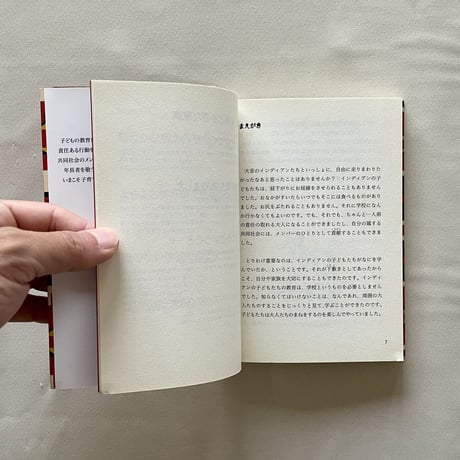 子どもの教育
責任ある行動
共同社会のメン
年長者を敬
いまこそ子育
まえがき
大昔のインディアンたちといっしょに、自由に走りまわりた
かったなあと思ったことはありませんか? インディアンの子
どもたちは、昼下がりにお昼寝をさせられることもありません
でした。おなかがすいたらいつでもそこには食べるものがあり
ました。お尻をぶたれることもありません。それに学校になん
か行かなくてもよいのです。でも、それでも、ちゃんと一人前
の責任の取れる大人になることができましたし、自分の属する
共同社会には、メンバーのひとりとして貢献することもできま
した。
とりわけ重要なのは、インディアンの子どもたちがなにを学
んでいたか、ということです。それが下敷きとしてあったから
こそ、自分や家族を大切にすることもできたのです。インディ
アンの子どもたちの教育は、学校というものを必要としません
でした。知らなくてはいけないことは、なんであれ、周囲の大
人たちのすることをじっくりと見て、学ぶことができたのです。
子どもたちは大人たちのまねをするのを楽しんでやっていました。
7